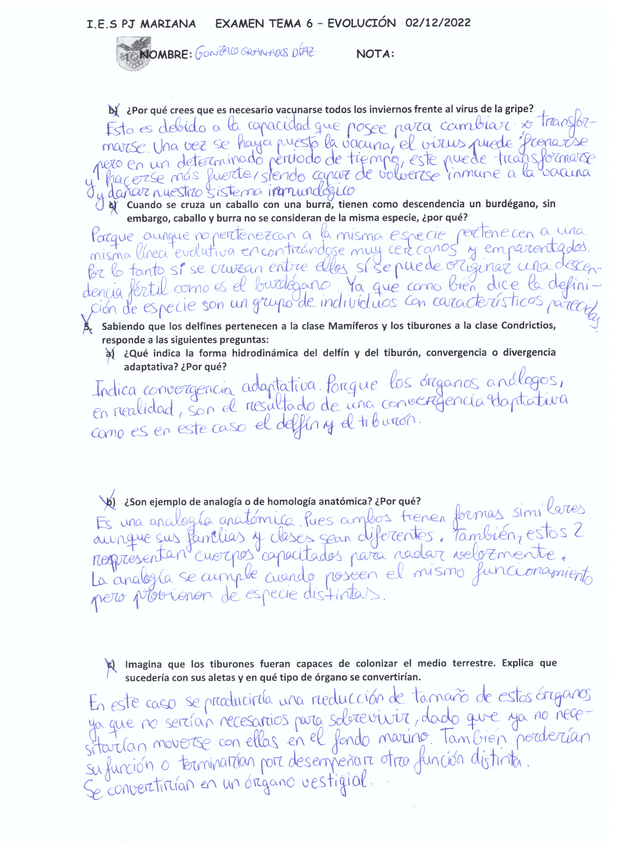 I.E.S PJ MARIANA EXAMEN TEMA 6 – EVOLUCIÓN 02/12/2022
NOMBRE: GONZALO GRANADOS DÍAZ NOTA:
b) ¿Por qué crees que es necesario vacunarse todos los inviernos frente al virus de la gripe?
Esto es debido a la capacidad que posee para cambiar o transfor-
marse. Una vez se haya puesto la vacuna, el virus puede frenarse
pero en un determinado período de tiempo, este puede transformarse
y hacerse más fuerte, siendo capaz de volverse inmune a la vacuna
y dañar nuestro sistema inmunológico
c) Cuando se cruza un caballo con una burra, tienen como descendencia un burdégano, sin
embargo, caballo y burra no se consideran de la misma especie, ¿por qué?
Porque aunque no pertenezcan a la misma especie pertenecen a una
misma línea evolutiva encontrándose muy cercanos y emparentados.
Por lo tanto si se cruzan entre ellos sí se puede originar una descen-
dencia fértil como es el burdégano. Ya que como bien dice la defini-
ción de especie son un grupo de individuos con características parecidas
5. Sabiendo que los delfines pertenecen a la clase Mamíferos y los tiburones a la clase Condrictios,
responde a las siguientes preguntas:
a) ¿Qué indica la forma hidrodinámica del delfín y del tiburón, convergencia o divergencia
adaptativa? ¿Por qué?
Indica convergencia adaptativa. Porque los órganos análogos,
en realidad, son el resultado de una convergencia adaptativa
como es en este caso el delfín y el tiburón.
b) ¿Son ejemplo de analogía o de homología anatómica? ¿Por qué?
Es una analogía anatómica. Pues ambos tienen formas similares
aunque sus familias y clases sean diferentes. También, estos 2
representan cuerpos capacitados para nadar velozmente.
La analogía se cumple cuando poseen el mismo funcionamiento
pero provienen de especie distintas.
c) Imagina que los tiburones fueran capaces de colonizar el medio terrestre. Explica que
sucedería con sus aletas y en qué tipo de órgano se convertirían.
En este caso se produciría una reducción de tamaño de estos órganos
ya que no serían necesarios para sobrevivir, dado que ya no nece-
sitarían moverse con ellas en el fondo marino. También perderían
su función o terminarían por desempeñar otra función distinta.
Se convertirían en un órgano vestigial.